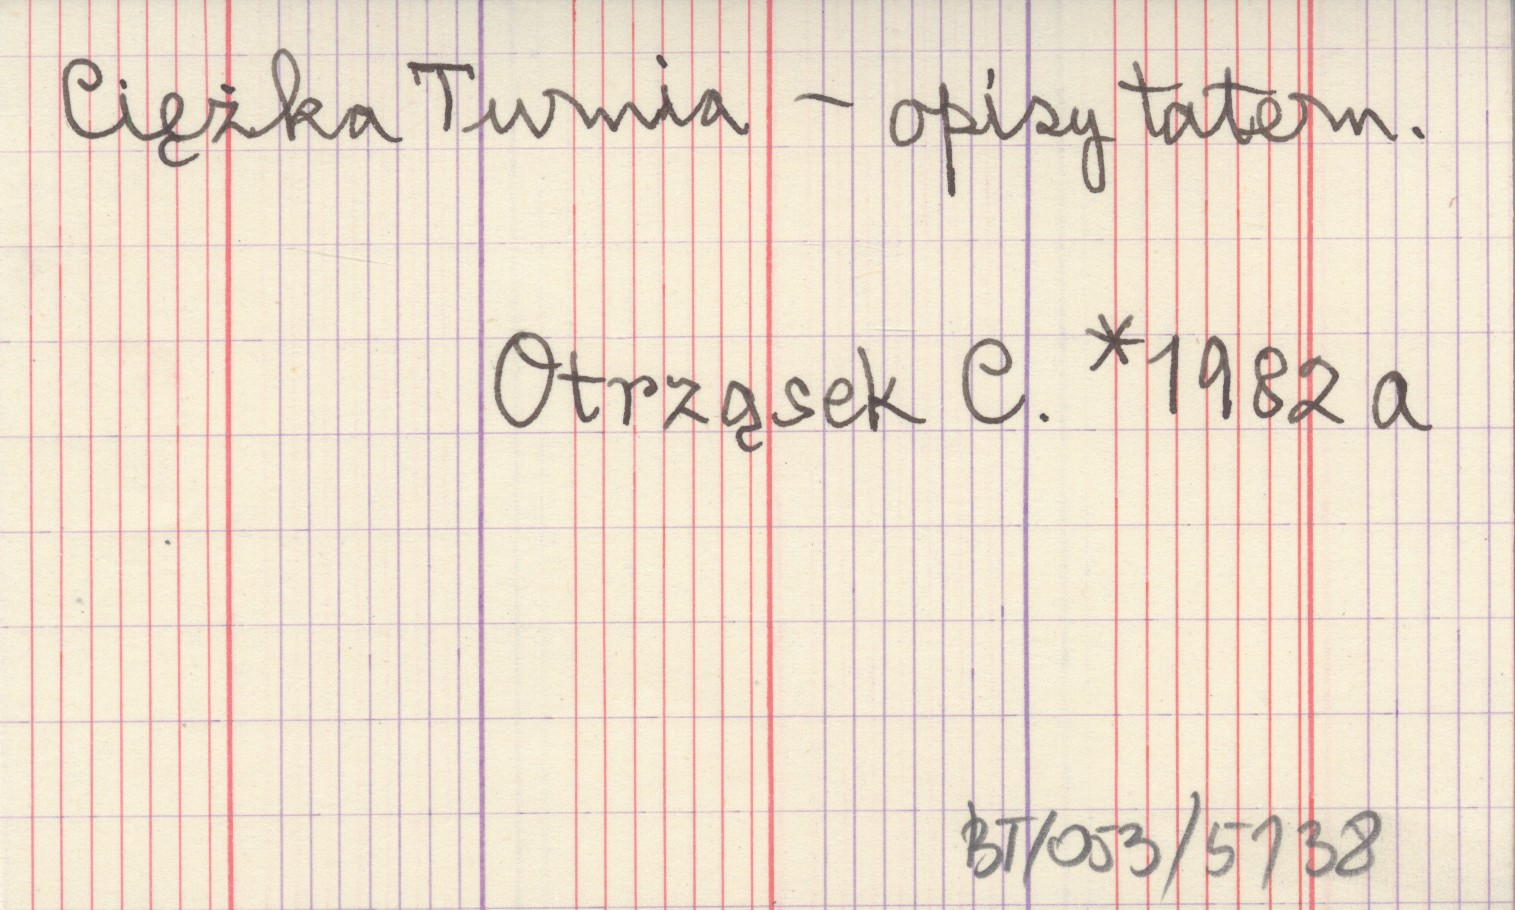 Ciężka Turnia - opisy tatern.
Otrząsek C. *1982 a
BT/053/5138